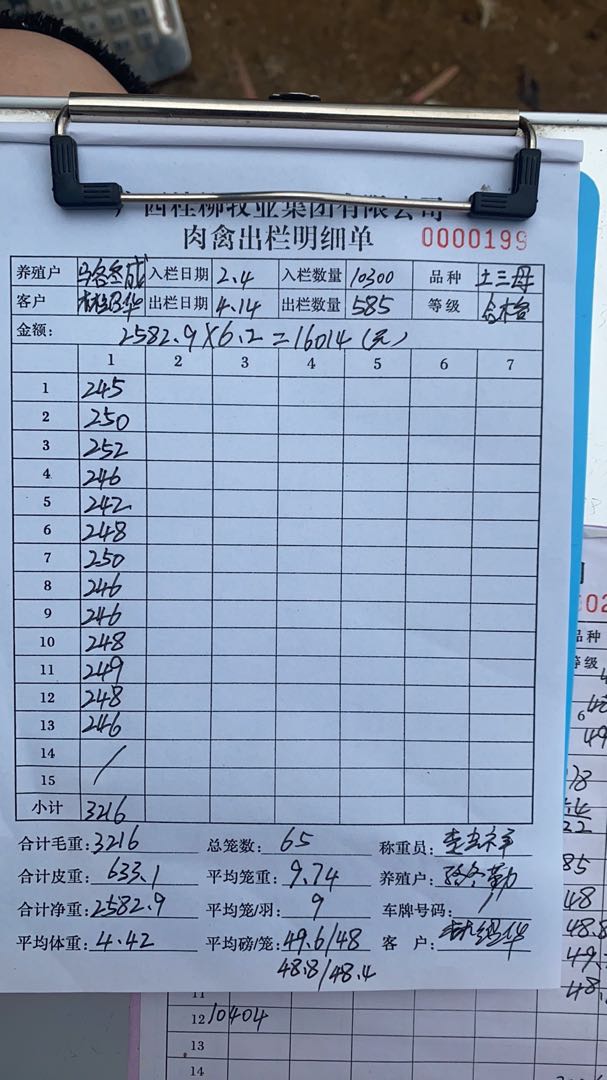 广西桂柳牧业集团有限公司
肉禽出栏明细单 0000199
养殖户 入栏日期 2.4 入栏数量 10300 品种 土三母
客户 出栏日期 4.14 出栏数量 585 等级 合格
金额: 2582.9×6.2=16014(元)
1 2 3 4 5 6 7
1 245
2 250
3 252
4 246
5 242
6 248
7 250
8 246
9 246
10 248
11 249
12 248
13 246
14 /
15
小计 3216
合计毛重: 3216 总笼数: 65 称重员:
合计皮重: 633.1 平均笼重: 9.74 养殖户:
合计净重: 2582.9 平均笼/羽: 9 车牌号码: /
平均体重: 4.42 平均磅/笼: 49.6/48 客户:
48.8/48.4
品种
等级
49
85
48
48.8
11
12 10404
13
14